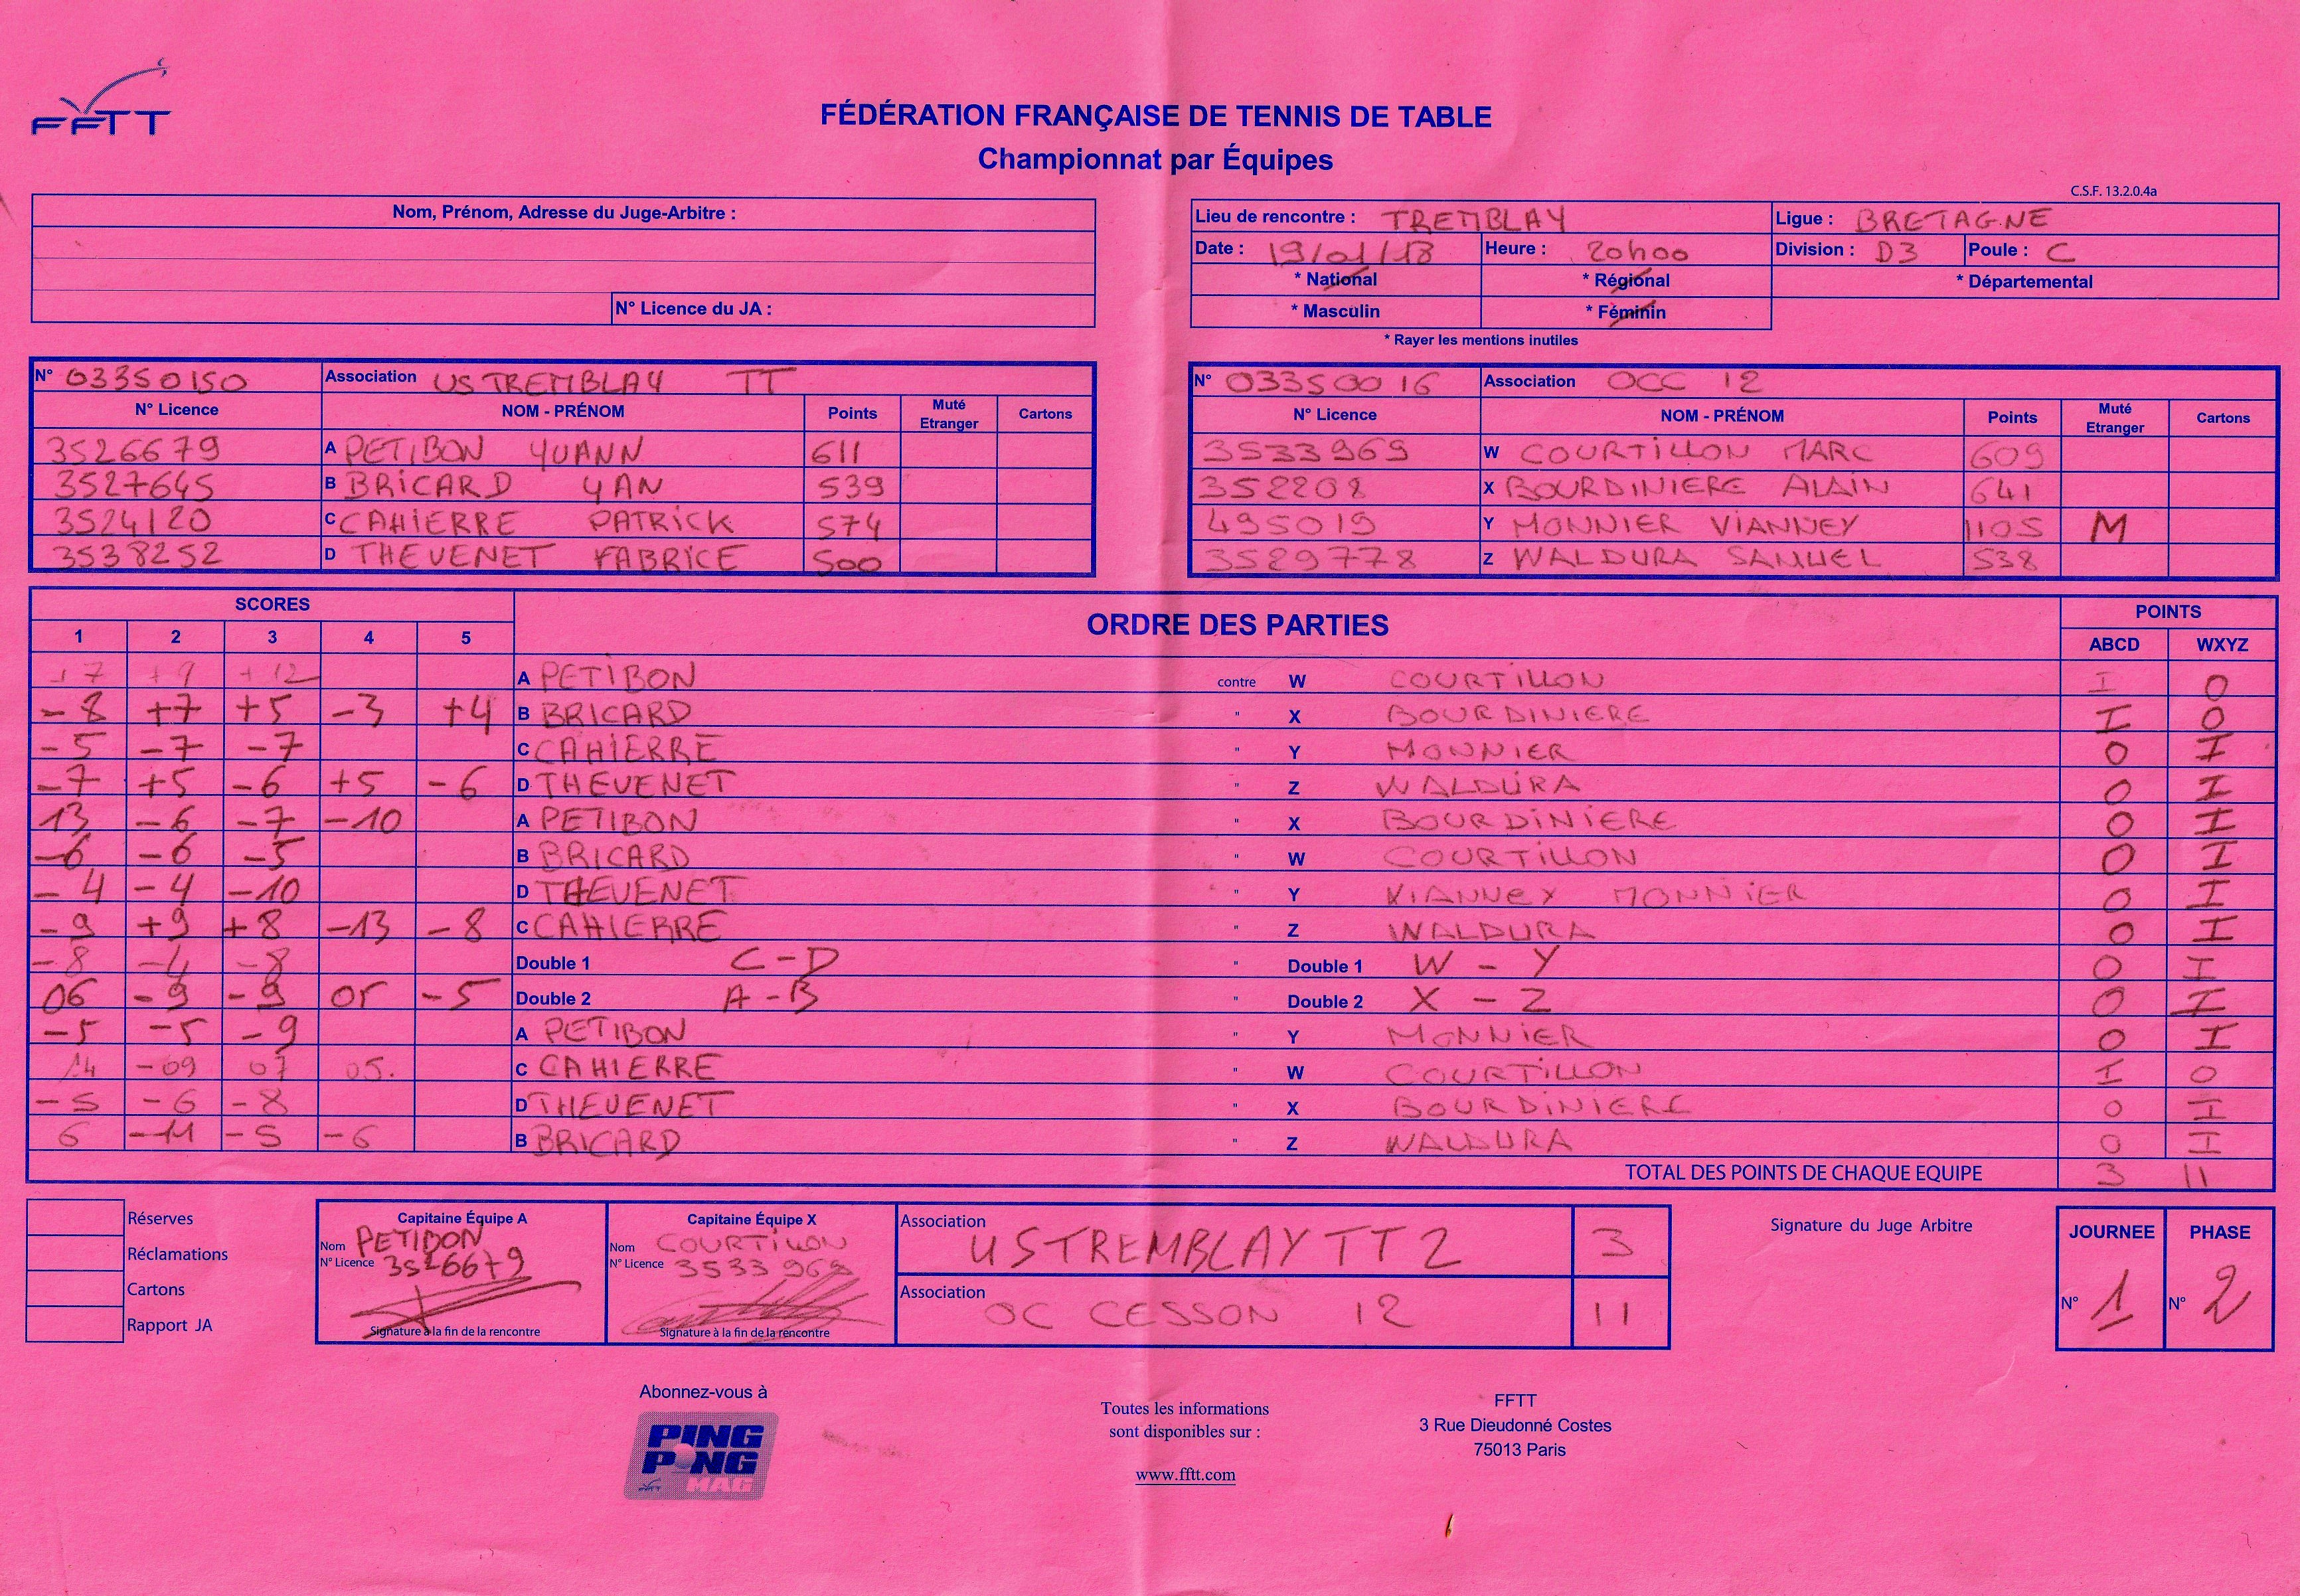 FFTT
FÉDÉRATION FRANÇAISE DE TENNIS DE TABLE
Championnat par Équipes
C.S.F. 13.2.0.4a
Nom, Prénom, Adresse du Juge-Arbitre :
N° Licence du JA :
Lieu de rencontre : TREMBLAY Ligue : BRETAGNE
Date : 19/01/18 Heure : 20h00 Division : D3 Poule : C
* National * Régional * Départemental
* Masculin * Féminin
* Rayer les mentions inutiles
N° 03350150 Association US TREMBLAY TT
N° Licence NOM - PRÉNOM Points Muté Etranger Cartons
3526679 A PETIBON YUANN 611
3527645 B BRICARD YAN 539
3524120 C CAHIERRE PATRICK 574
3538252 D THEVENET FABRICE 500
N° 03350016 Association OCC 12
N° Licence NOM - PRÉNOM Points Muté Etranger Cartons
3533969 W COURTILLON MARC 609
352208 X BOURDINIERE ALAIN 641
495019 Y MONNIER VIANNEY 1105 M
3529778 Z WALDURA SAMUEL 538
SCORES ORDRE DES PARTIES POINTS
1 2 3 4 5 ABCD WXYZ
+7 +9 +12 A PETIBON contre W COURTILLON I 0
-8 +7 +5 -3 +4 B BRICARD " X BOURDINIERE I 0
-5 -7 -7 C CAHIERRE " Y MONNIER 0 I
-7 +5 -6 +5 -6 D THEVENET " Z WALDURA 0 I
13 -6 -7 -10 A PETIBON " X BOURDINIERE 0 I
-6 -6 -5 B BRICARD " W COURTILLON 0 I
-4 -4 -10 D THEVENET " Y VIANNEY MONNIER 0 I
-9 +9 +8 -13 -8 C CAHIERRE " Z WALDURA 0 I
-8 -4 -8 Double 1 C-D " Double 1 W-Y 0 I
06 -9 -9 05 -5 Double 2 A-B " Double 2 X-Z 0 I
-5 -5 -9 A PETIBON " Y MONNIER 0 I
14 -09 07 05. C CAHIERRE " W COURTILLON I 0
-5 -6 -8 D THEVENET " X BOURDINIERE 0 I
6 -11 -5 -6 B BRICARD " Z WALDURA 0 I
TOTAL DES POINTS DE CHAQUE EQUIPE 3 11
Réserves
Réclamations
Cartons
Rapport JA
Capitaine Équipe A
Nom PETIBON
N° Licence 3526679
Signature à la fin de la rencontre
Capitaine Équipe X
Nom COURTILLON
N° Licence 3533969
Signature à la fin de la rencontre
Association US TREMBLAY TT 2 3
Association OC CESSON 12 11
Signature du Juge Arbitre
JOURNEE PHASE
N° 1 N° 2
Abonnez-vous à
PING PONG MAG
Toutes les informations
sont disponibles sur :
www.fftt.com
FFTT
3 Rue Dieudonné Costes
75013 Paris